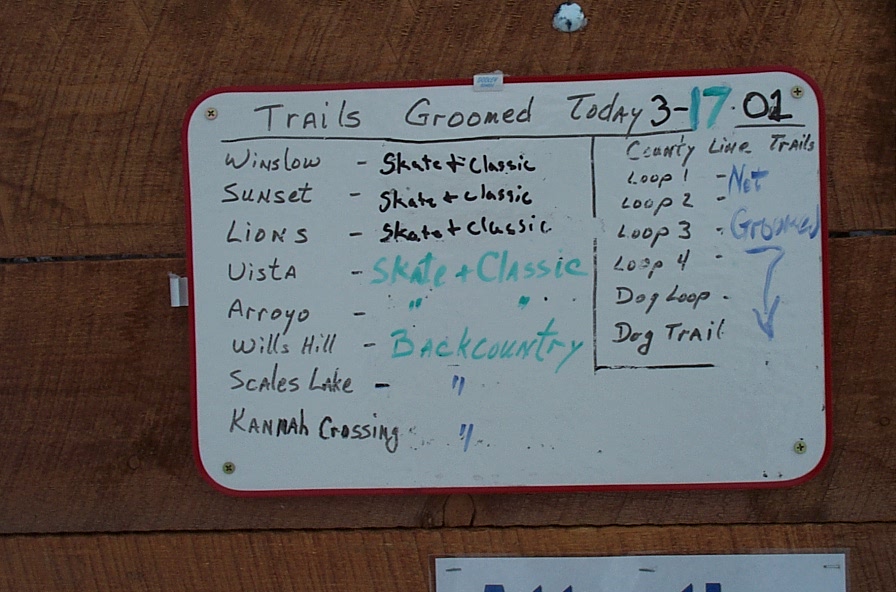 Trails Groomed Today 3-17-01
Winslow - Skate + Classic
Sunset - Skate + Classic
Lions - Skate + Classic
Vista - Skate + Classic
Arroyo - " "
Wills Hill - Backcountry
Scales Lake - "
Kannah Crossing "
County Line Trails
Loop 1 - Not
Loop 2 -
Loop 3 - Groomed
Loop 4 -
Dog Loop -
Dog Trail